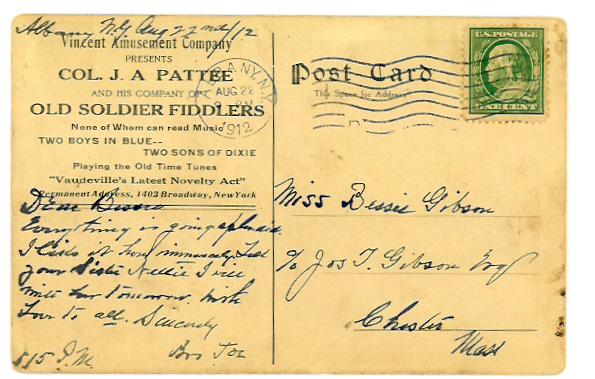 Albany N.Y. Aug 22nd/12
Vincent Amusement Company
PRESENTS
COL. J. A PATTEE
AND HIS COMPANY OF
OLD SOLDIER FIDDLERS
None of Whom can read Music
TWO BOYS IN BLUE--
TWO SONS OF DIXIE
Playing the Old Time Tunes
"Vaudeville's Latest Novelty Act"
Permanent Address, 1402 Broadway, NewYork
Dear
Everything is going
I like it
your Sister Nellie I will
write her tomorrow. with
Love to all. Sincerely
Bro Joe
515 P.M.
ANY, N.Y.
AUG 22
1912
Post Card
This Space for Address
U.S. POSTAGE
ONE CENT
Miss Bessie Gibson
c/o Jos T. Gibson Esq
Chester
Mass